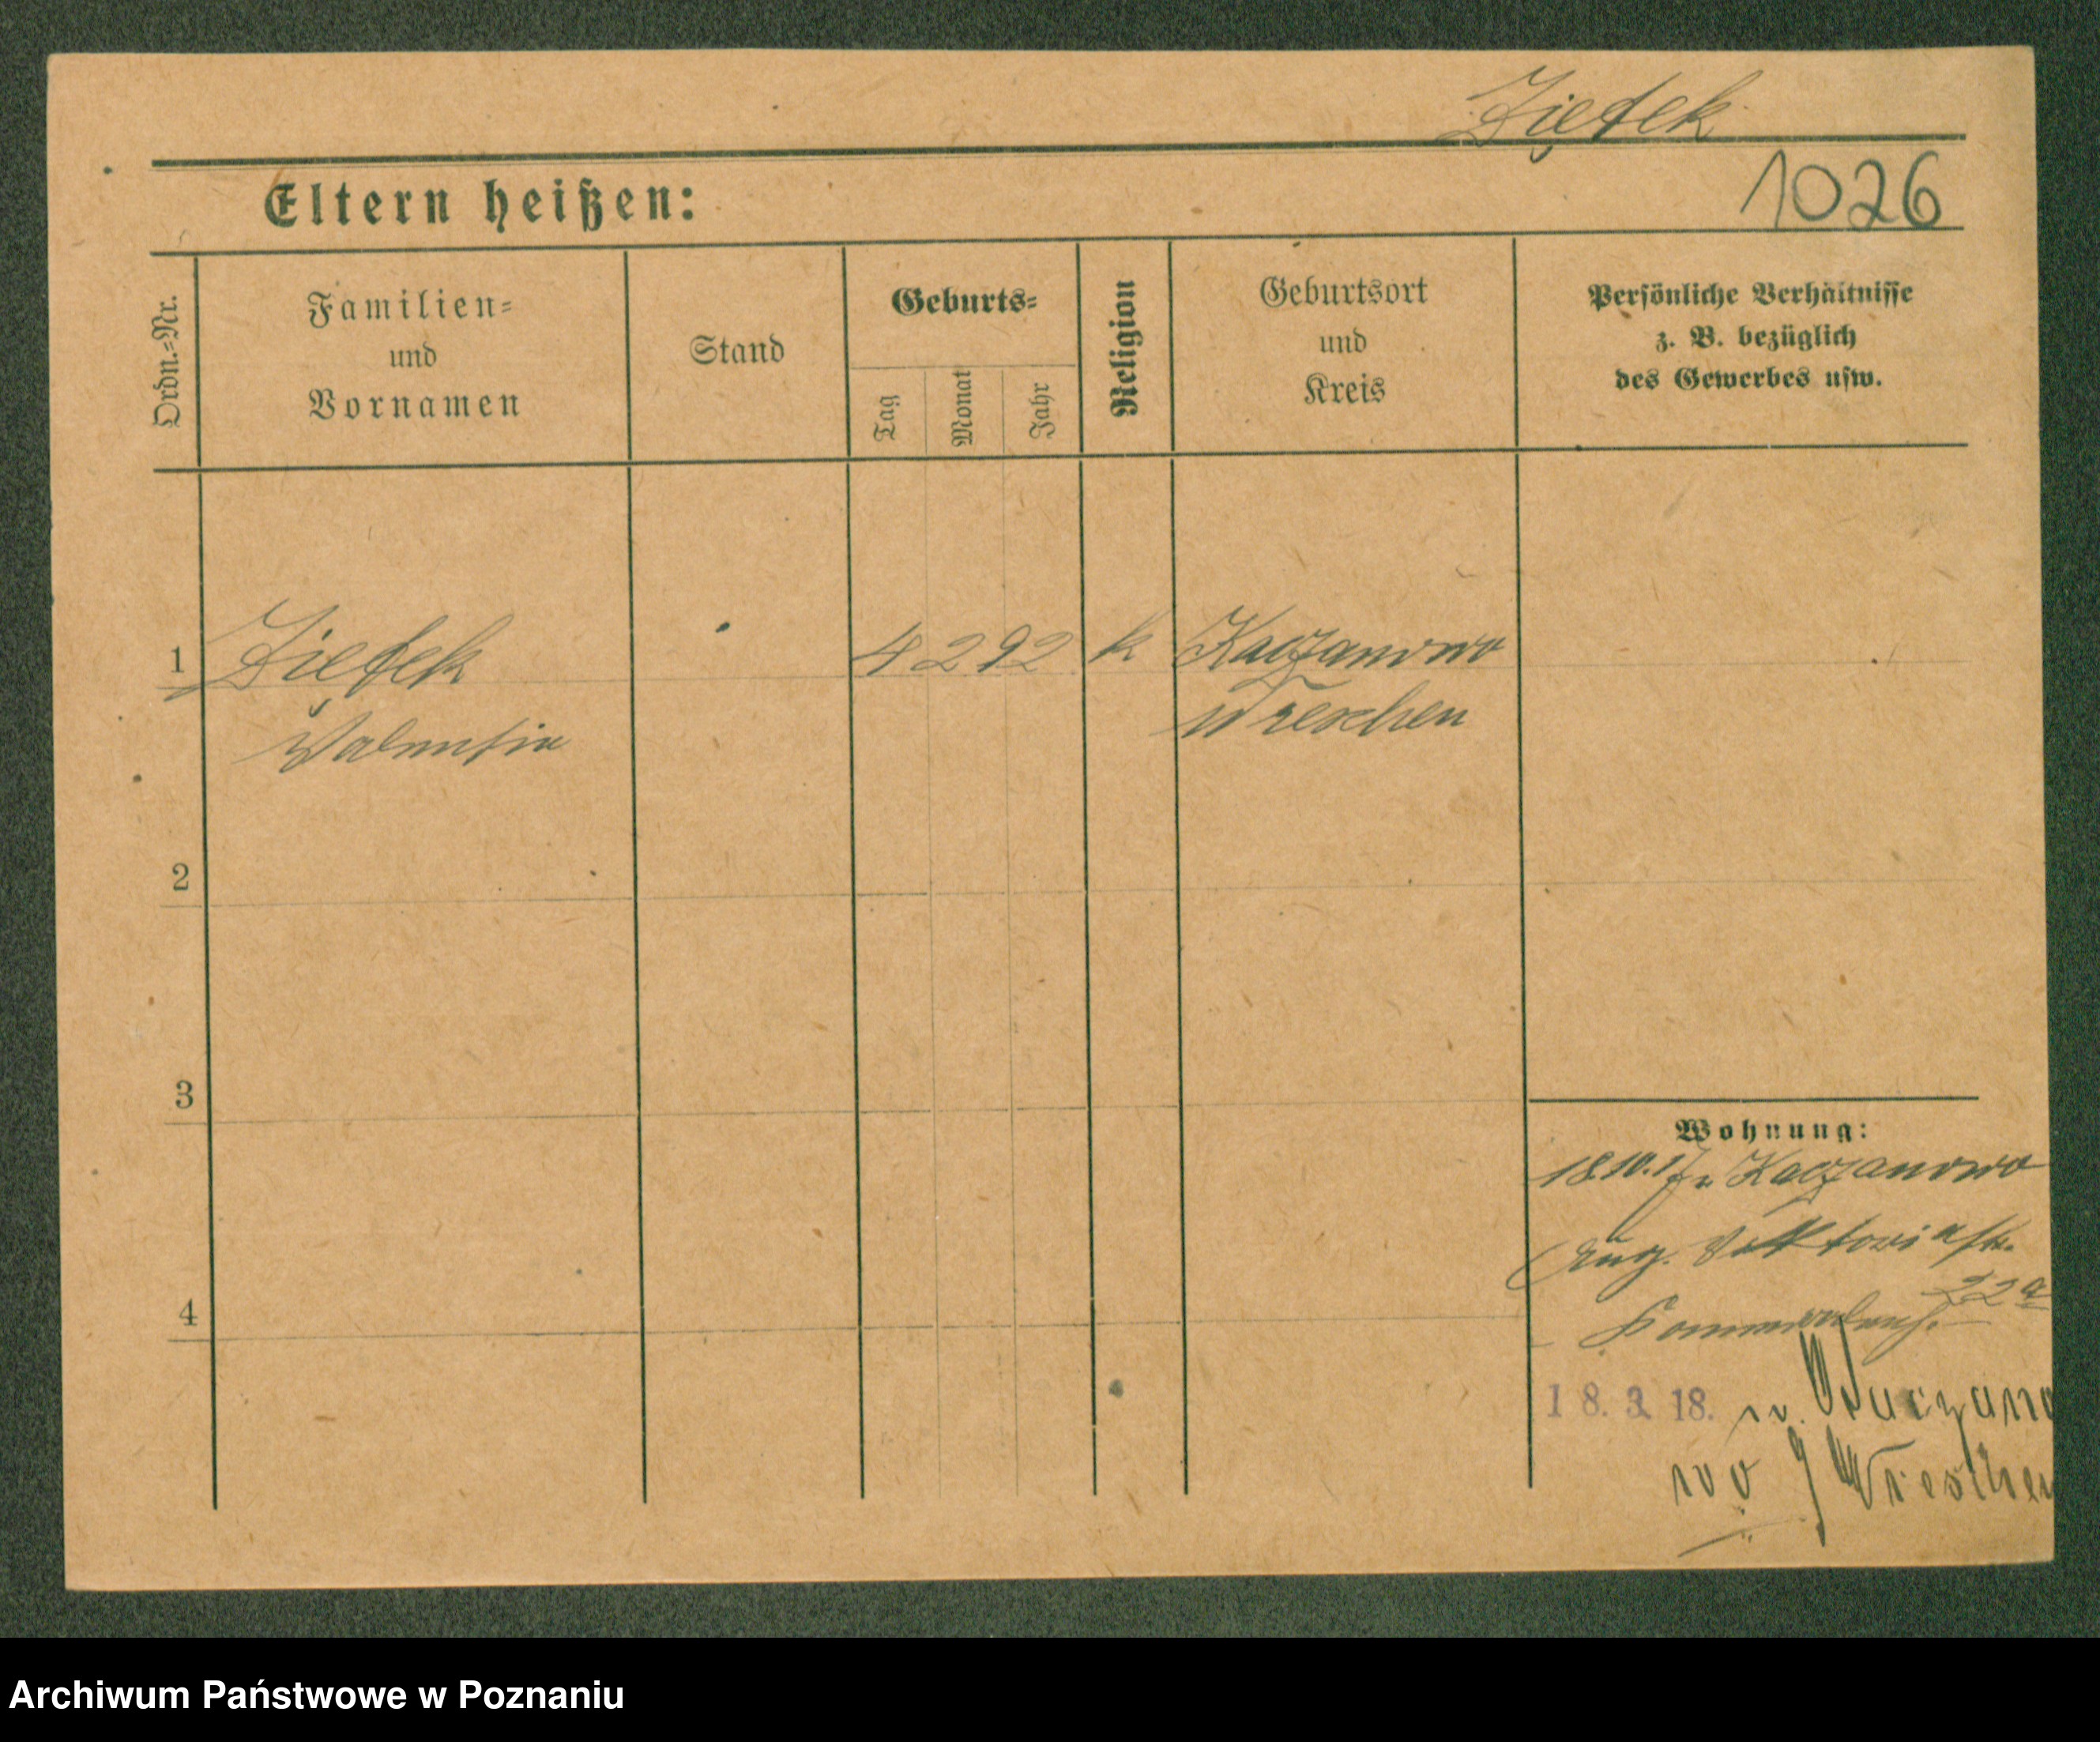 Ziętek
Eltern heißen:
1026
Ordn.-Nr.
Familien-
und
Vornamen
Stand
Geburts-
Tag
Monat
Jahr
Religion
Geburtsort
und
Kreis
Persönliche Verhältnisse
z. B. bezüglich
des Gewerbes usw.
1 Ziętek 4 2 92 k Kaczanowo
Valentin Wreschen
2
3
4
Wohnung:
18.10.17 v. Kaczanowo
Aug. Viktoriastr.
22a
18. 3. 18. n. Kaczano
wo Wreschen
Archiwum Państwowe w Poznaniu